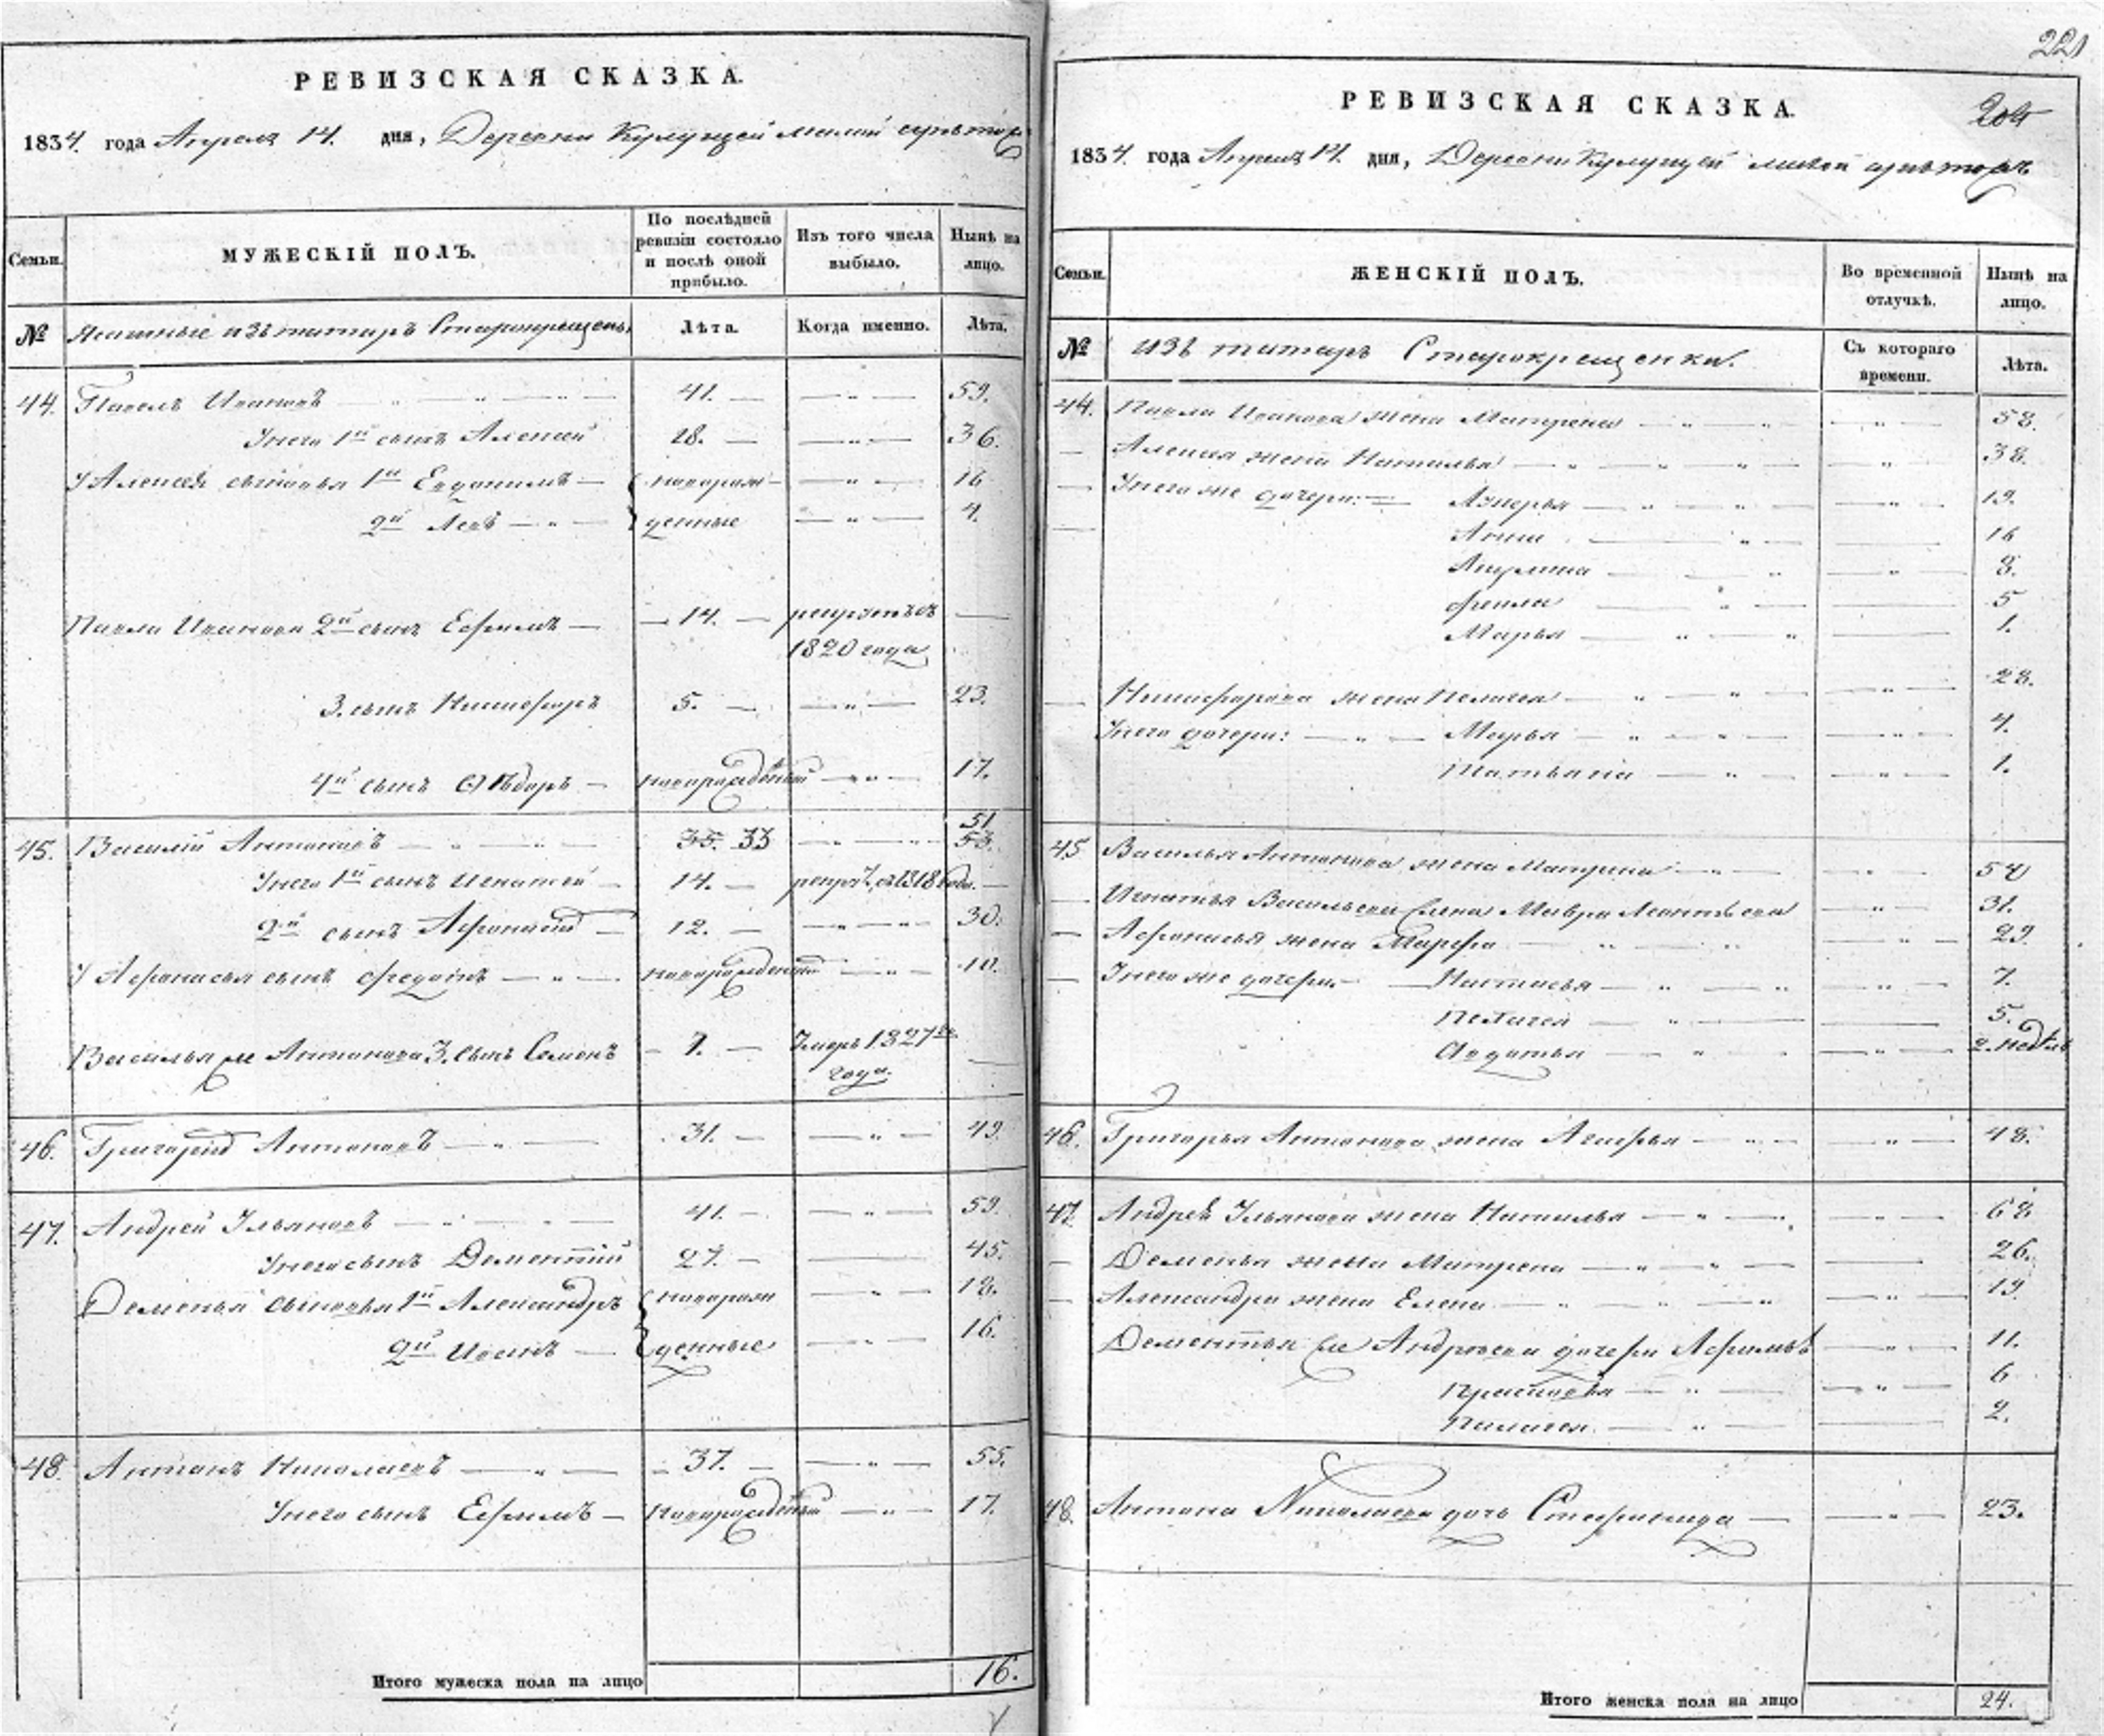 РЕВИЗСКАЯ СКАЗКА.
1834. года Апреля 14. дня, Деревни
Семьи. МУЖЕСКІЙ ПОЛЪ. По послѣдней ревизіи состояло и послѣ оной прибыло. Изъ того числа выбыло. Нынѣ на лицо.
№ Ясашные изъ татаръ Старокрещены, Лѣта. Когда именно. Лѣта.
44. Павелъ Ивановъ — „ — „ — 41. — „ — 59.
Унего 1й сынъ Алексей 18. — — „ — 36.
У Алексея сыновья 1й Евдокимъ — новорож- — „ — 16
2й Левъ — „ — денные — „ — 4.
Павла Иванова 2й сынъ Ефимъ — — 14. — рекрутъ съ —
1820 года
3. сынъ Никифоръ 5. — — „ — 23.
4й сынъ Ѳёдоръ — новорожденный — „ — 17.
45. Василій Антоновъ — „ — 35. 33 — „ — 51 53.
Унего 1й сынъ Игнатей — 14. — съ 1818 года. —
2й сынъ Афонасей — 12. — — „ — 30.
У Афонасья сынъ Федотъ — „ — новорожденный — „ — 10.
Василья же Антонова 3. сынъ Семенъ — 7. — Умеръ 1827го —
года.
46. Григорей Антоновъ — „ — 31. — — „ — 49.
47. Андрей Ульяновъ — „ — 41. — — „ — 59.
Унего сынъ Дементій 27. — — 45.
Дементья сыновья 1й Александръ новорож — „ — 18.
2й Иванъ — денные — „ — 16.
48. Антонъ Николаевъ — „ — — 37. — — „ — 55.
Унего сынъ Ефимъ — Новорожденный — „ — 17.
Итого мужеска пола на лицо 16.
221
РЕВИЗСКАЯ СКАЗКА.
1834. года Апреля 14. дня, Деревни
Семьи. ЖЕНСКІЙ ПОЛЪ. Во временной отлучкѣ. Нынѣ на лицо.
№ изъ татаръ Старокрещенка. Съ котораго времени. Лѣта.
44. Павла Иванова жена Матрена — „ — „ — „ — 58.
— Алексея жена Наталья — „ — „ — „ — „ 38.
— Унего же дочери: — „ — „ — „ — 19.
Анна — „ — — 16
Акулина — „ — „ — 8.
Фекла — „ — — 5
Марья — „ — „ — 1.
— Никифорова жена Пелагея — „ — „ — „ — „ — 28.
Унего дочери: — „ — Марья — „ — „ — „ — 4.
Татьяна — „ — — „ — 1.
45 Василья Антонова жена Матрена — „ — „ — 54
— Игнатья Васильева жена Мавра Леонтьева — „ — 31.
— Афонасья жена Марфа — „ — „ — „ — 29.
— Унего же дочери. — Настасья — „ — „ — „ — 7.
Пелагея — „ — — 5.
Авдотья — „ — — „ — 2. недѣль
46. Григорья Антонова жена Агафья — „ — — „ — 48.
47. Андрея Ульянова жена Наталья — „ — — „ — 62
— Дементья жена Матрена — „ — „ — — 26.
— Александра жена Елена — „ — „ — „ — „ — 19
Дементья же Андреева дочери Афимья — „ — 11.
Прасковья — „ — — „ — 6
Палагея — „ — — 2.
48. Антона Николаева дочь Степанида — — „ — 23.
Итого женска пола на лицо 24.